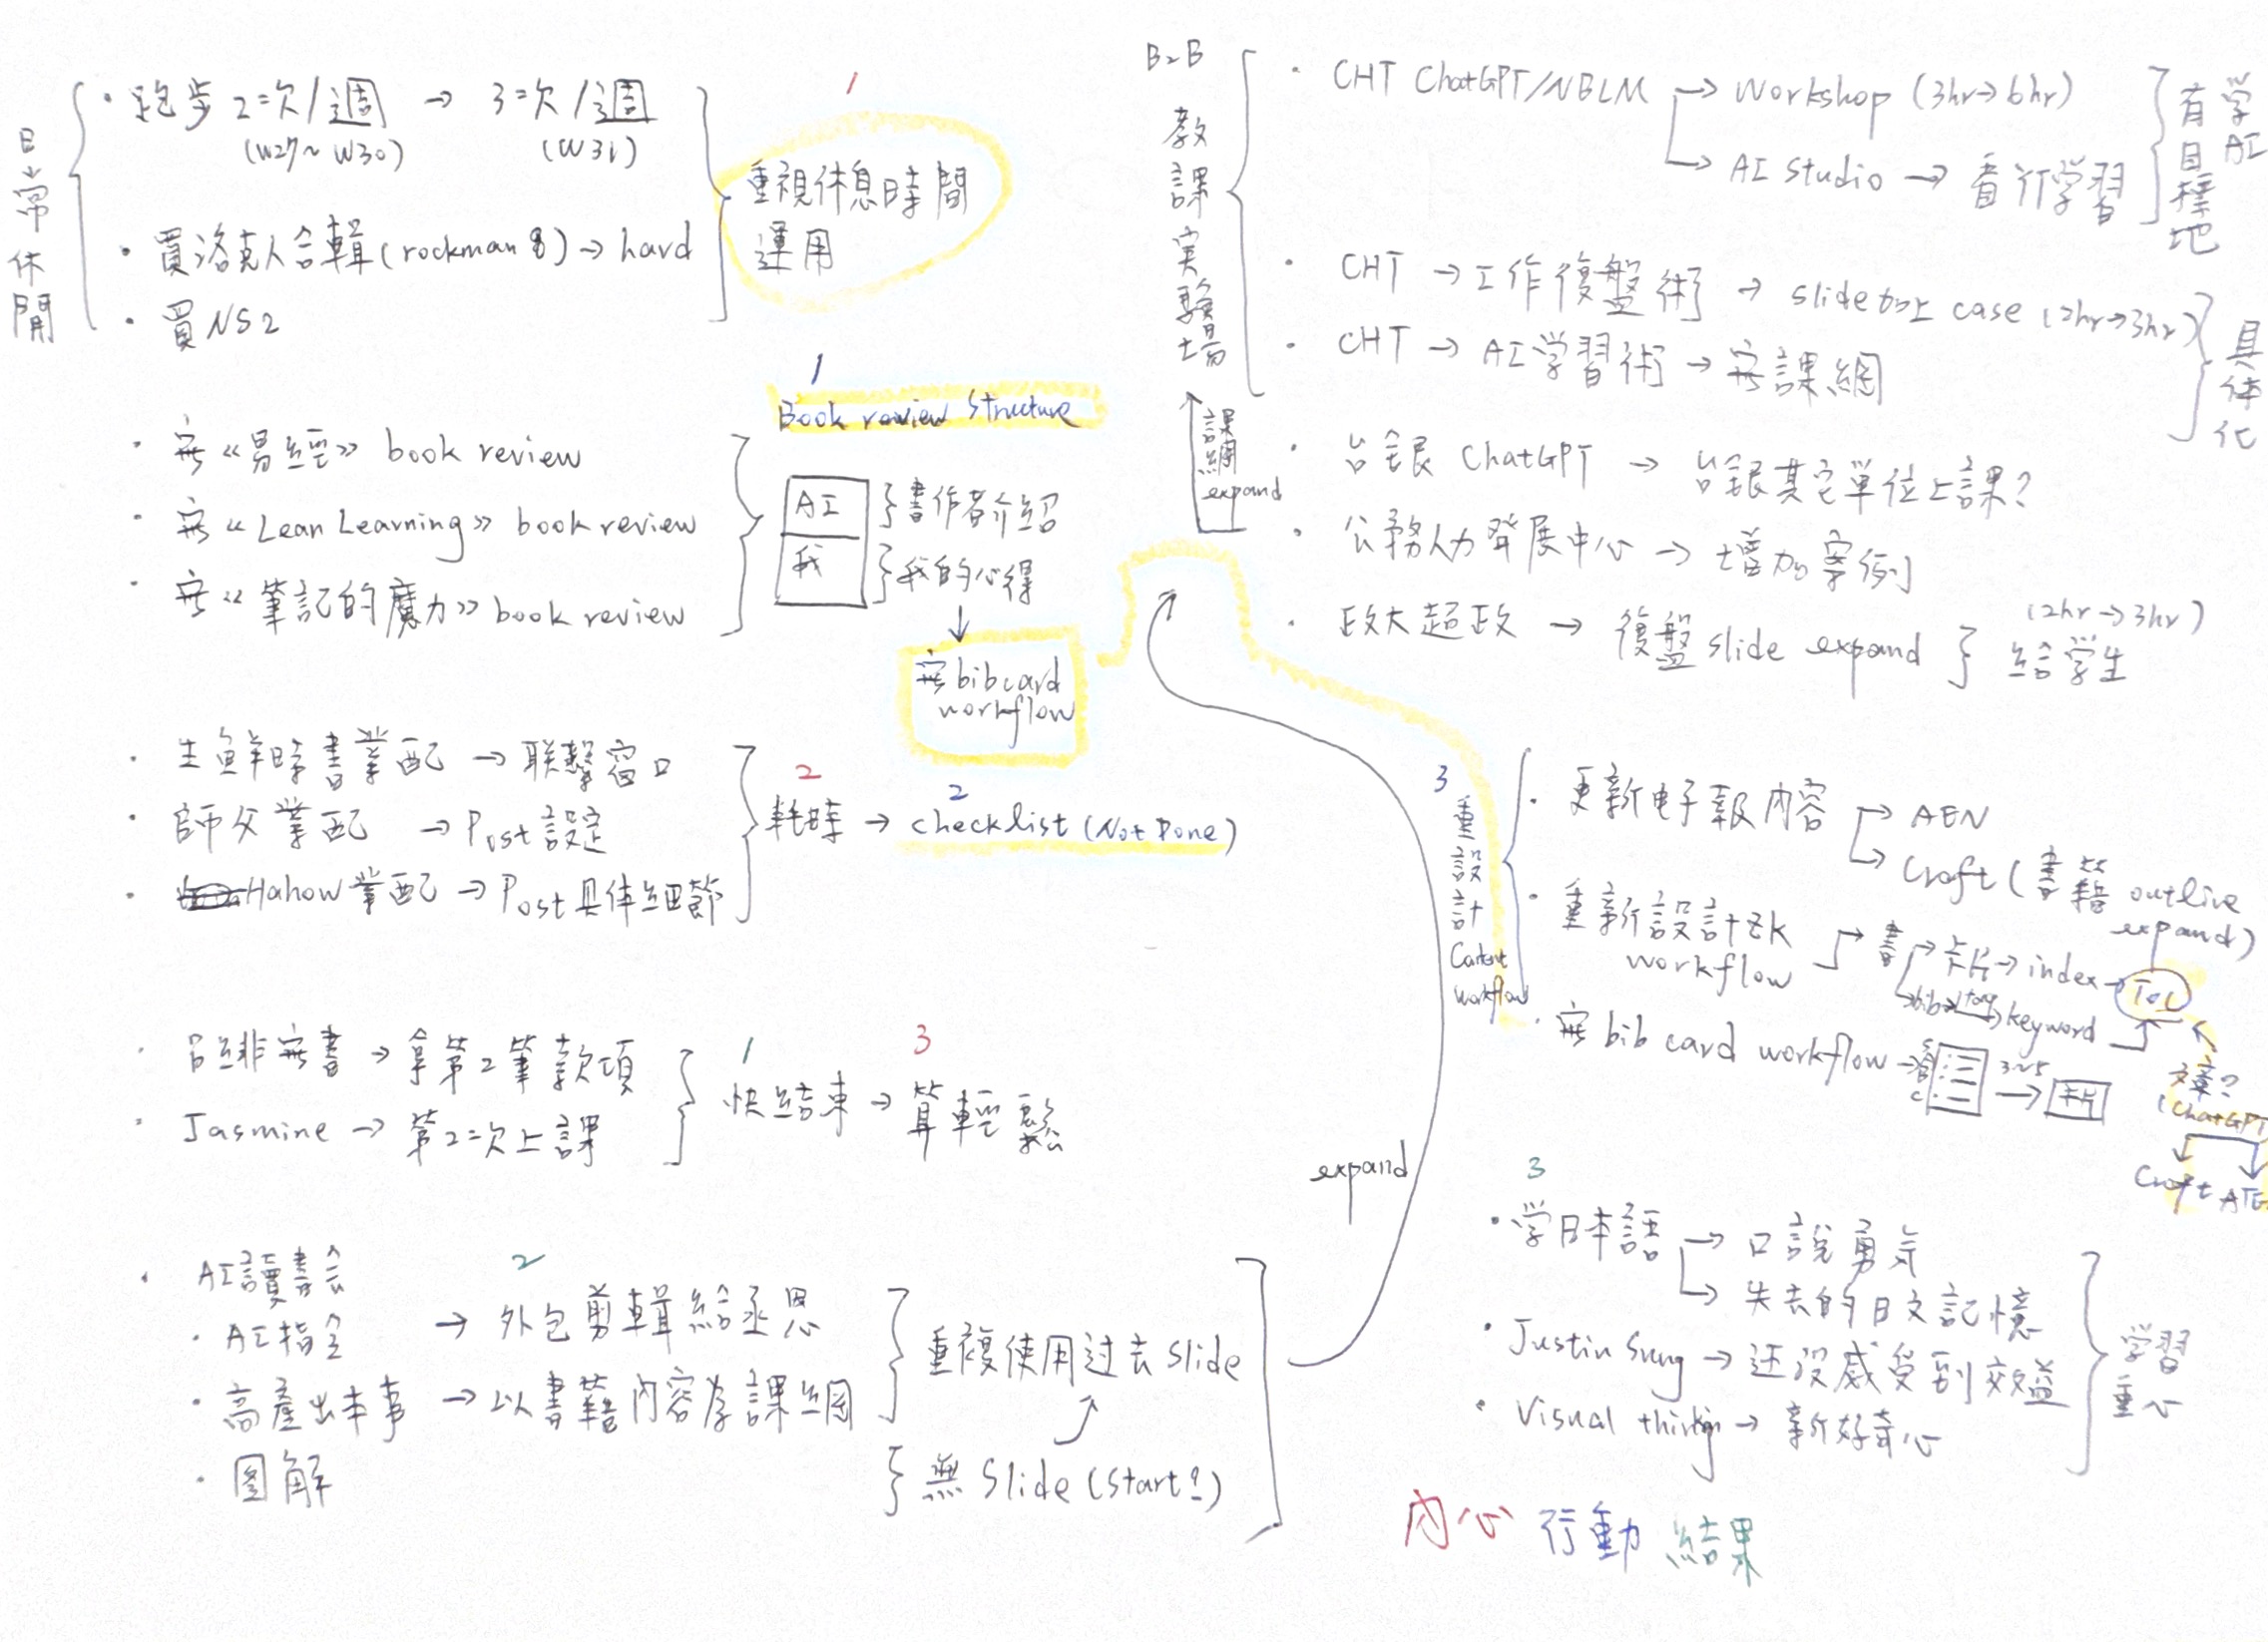 日常休閒
・跑步 2次/週 → 3次/週
(W27~W30) (W31)
・買洛克人合輯(rockman 8) → hard
・買NS2
1
重視休息時間
運用
1
Book review Structure
・寫《易經》book review
・寫《Lean Learning》book review
・寫《筆記的魔力》book review
AI } 書作者介紹
我 } 我的心得
↓
寫bibcard
workflow
・生鮮時書業配 → 聯繫窗口
・師父業配 → Post設定
・Hahow業配 → Post具体細節
2
耗時 →
2
checklist (Not Done)
・呂紼寫書 → 拿第2筆款項
・Jasmine → 第2次上課
1
快結束 →
3
算輕鬆
・AI讀書会
・AI指令
2
→ 外包剪輯給丞恩
・高產出本事 → 以書籍內容為課綱
・圖解
重複使用过去 slide
無 Slide (Start!)
expand
B2B
教課実驗場
課綱
expand
・CHT ChatGPT/NBLM → Workshop (3hr→6hr)
→ AI Studio → 看YT学習
学AI
有目標地
・CHT → 工作復盤術 → slide加上 case (2hr→3hr)
・CHT → AI学習術 → 寫課綱
具体化
・台銀 ChatGPT → 台銀其它單位上課?
・公務人力發展中心 → 增加案例
・政大超政 → 復盤slide expand } 給学生
(2hr→3hr)
3
重設計
Content
workflow
・更新电子報內容 → AEN
→ Craft (書籍 outline
expand)
・重新設計ZK
workflow → 書 → 卡片 → index → ToC
→ bib → tag → keyword
・寫 bib card workflow → 3~5 → 卡片
文章?
(ChatGPT
Craft ATE
3
・学日本語 → 口說勇気
→ 失去的日文記憶
・Justin Sung → 还沒感受到效益
・Visual thinking → 新好奇心
学習
重心
內心 行動 結果